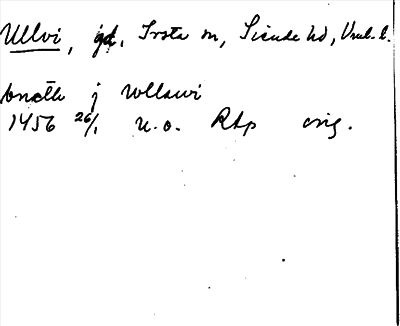 Ullvi, gd, Irsta sn, Siende hd, Vml. l.
j Wllawi
1456 26/1 u.o. RAp orig.